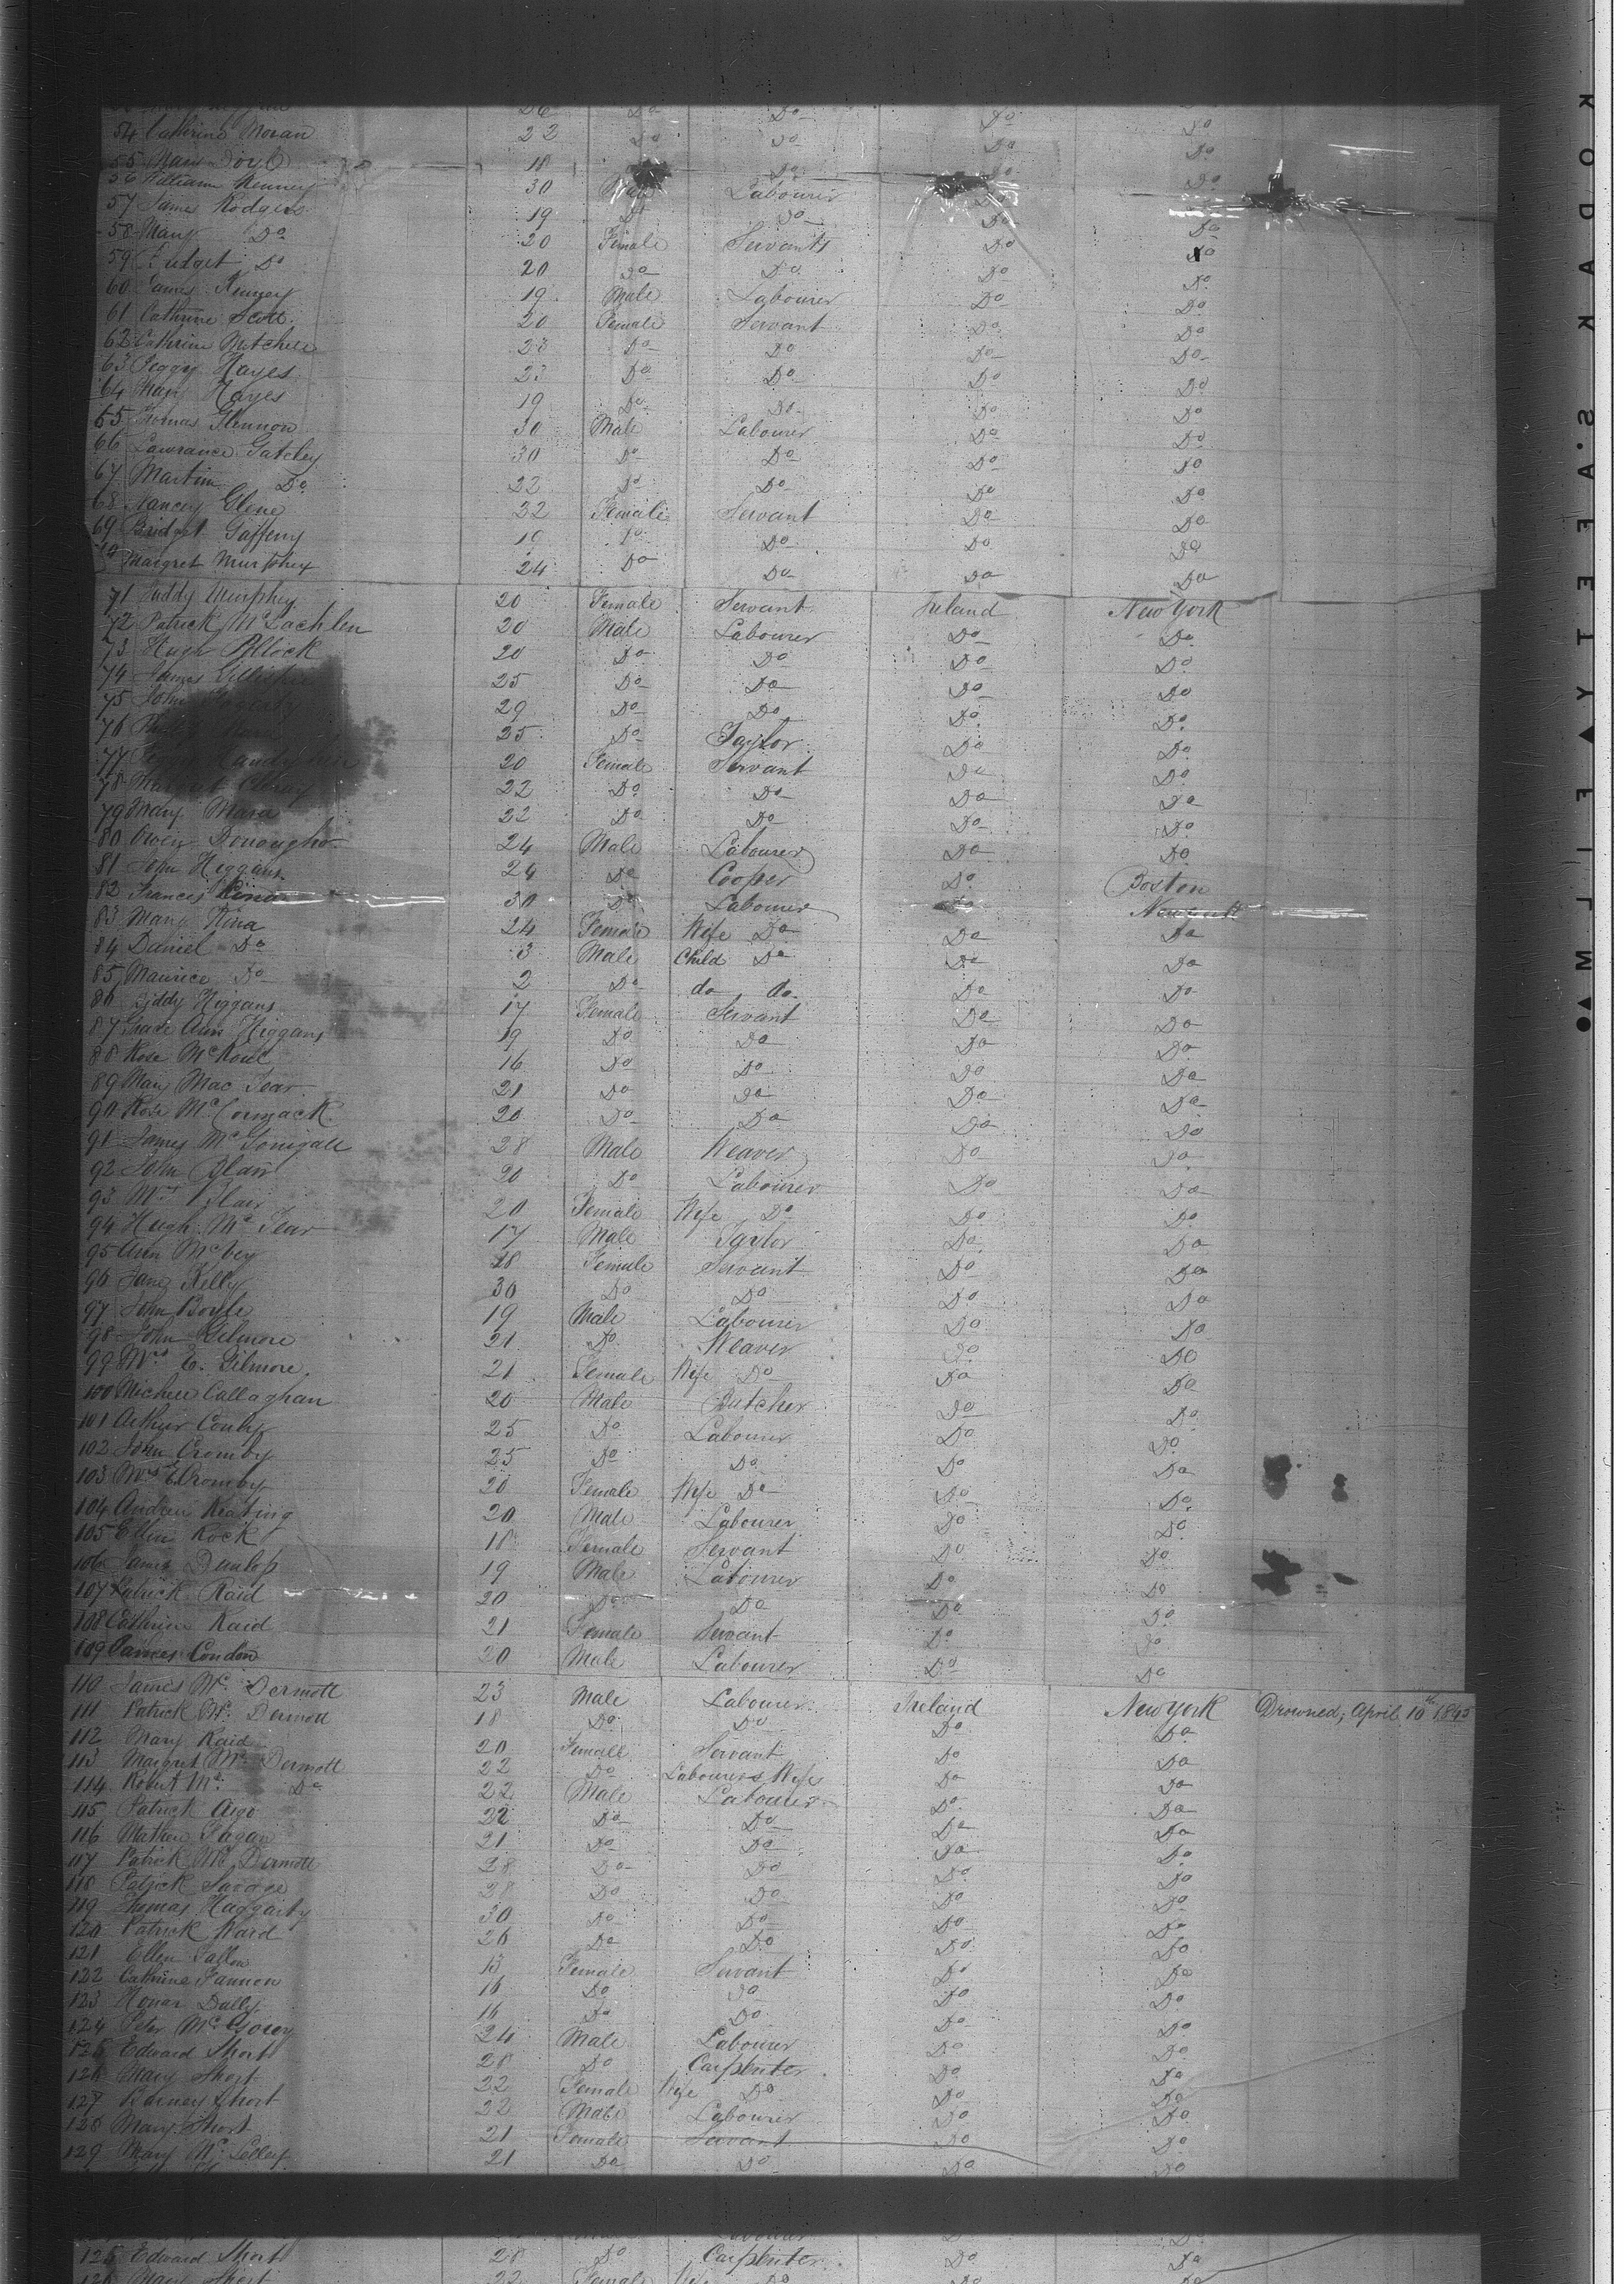 54 Cathrine Moran 22 Do Do Do Do
55 Mary Doyle 18 Do Do Do
56 William Kenney 30 Male Labourer Do
57 James Rodgers 19 Do Do Do Do
58 Mary Do 20 Female Servants Do Do
59 Bridget Do 20 Do Do Do Do
60 James Kenney 19 Male Labourer Do Do
61 Cathrine Scott 20 Female Servant Do Do
62 Cathrine Mitchell 23 Do Do Do Do
63 Peggy Hayes 23 Do Do Do Do
64 Mary Hayes 19 Do Do Do Do
65 Thomas Glennon 30 Male Labourer Do Do
66 Lawrance Gatchey 30 Do Do Do Do
67 Martin Do 22 Do Do Do Do
68 Nancey Glene 22 Female Servant Do Do
69 Bridget Gaffeny 19 Do Do Do Do
70 Margret Murphey 24 Do Do Do Do
71 Juddy Murphey 20 Female Servant Ireland New York
72 Patrick McLachlen 20 Male Labourer Do Do
73 Hugh Block 20 Do Do Do Do
74 James 25 Do Do Do Do
75 John 29 Do Do Do Do
76 25 Do Taylor Do Do
77 20 Female Servant Do Do
78 22 Do Do Do Do
79 Mary Mara 22 Do Do Do Do
80 Owen Donaugho 24 Male Labourer Do Do
81 John Higgans 24 Do Cooper Do Boston
82 Frances Kina 30 Do Labourer Do New York
83 Mary Kina 24 Female Wife Do Do Do
84 Daniel Do 3 Male Child Do Do Do
85 Maurice Do 2 Do do do Do Do
86 Biddy Higgans 17 Female Servant Do Do
87 Grace Ann Higgans 19 Do Do Do Do
88 Rose McKoul 16 Do Do Do Do
89 Mary Mac Fear 21 Do Do Do Do
90 Rose McCormack 20 Do Do Do Do
91 James McGonigall 28 Male Weaver Do Do
92 John Blair 20 Do Labourer Do Do
93 Mrs Blair 20 Female Wife Do Do Do
94 Hugh Mc Fear 17 Male Taylor Do Do
95 Ann McVey 18 Female Servant Do Do
96 Jane Kelly 30 Do Do Do Do
97 John Boyle 19 Male Labourer Do Do
98 John Gilmore 21 Do Weaver Do Do
99 Mrs E. Gilmore 21 Female Wife Do Do Do
100 Michell Callaghan 20 Male Butcher Do Do
101 Arthur Conley 25 Do Labourer Do Do
102 John Cromby 25 Do Do Do Do
103 Mrs E Cromby 20 Female Wife Do Do Do
104 Andrew Keating 20 Male Labourer Do Do
105 Ellin Rock 18 Female Servant Do Do
106 James Dunlop 19 Male Labourer Do Do
107 Patrick Raid 20 Do Do Do Do
108 Cathrine Raid 21 Female Servant Do Do
109 James Condon 20 Male Labourer Do Do
110 James Mc Dermott 23 Male Labourer Ireland New York Drowned, April 10th 1845
111 Patrick Mc Dermott 18 Do Do Do Do
112 Mary Raid 20 Female Servant Do Do
113 Margret Mc Dermott 22 Do Labourers Wife Do Do
114 Robert Mc Do 22 Male Labourer Do Do
115 Patrick 22 Do Do Do Do
116 Mathew Fagan 21 Do Do Do Do
117 Patrick Mc Dermott 28 Do Do Do Do
118 Patrick Savage 28 Do Do Do Do
119 Thomas Haggarty 30 Do Do Do Do
120 Patrick Ward 26 Do Do Do Do
121 Ellen Fallon 13 Female Servant Do Do
122 Cathrine Fannon 16 Do Do Do Do
123 Honar Dally 16 Do Do Do Do
124 Peter Mc 24 Male Labourer Do Do
125 Edward Short 28 Do Carpenter Do Do
126 Mary Short 22 Female Wife Do Do Do
127 Barney Short 22 Male Labourer Do Do
128 Mary Short 21 Female Servant Do Do
129 Mary Mc 21 Do Do Do Do
125 Edward Short 28 Do Carpenter Do Do
126 Mary Short 22 Female Wife Do Do Do
KODAK S.A.FETY